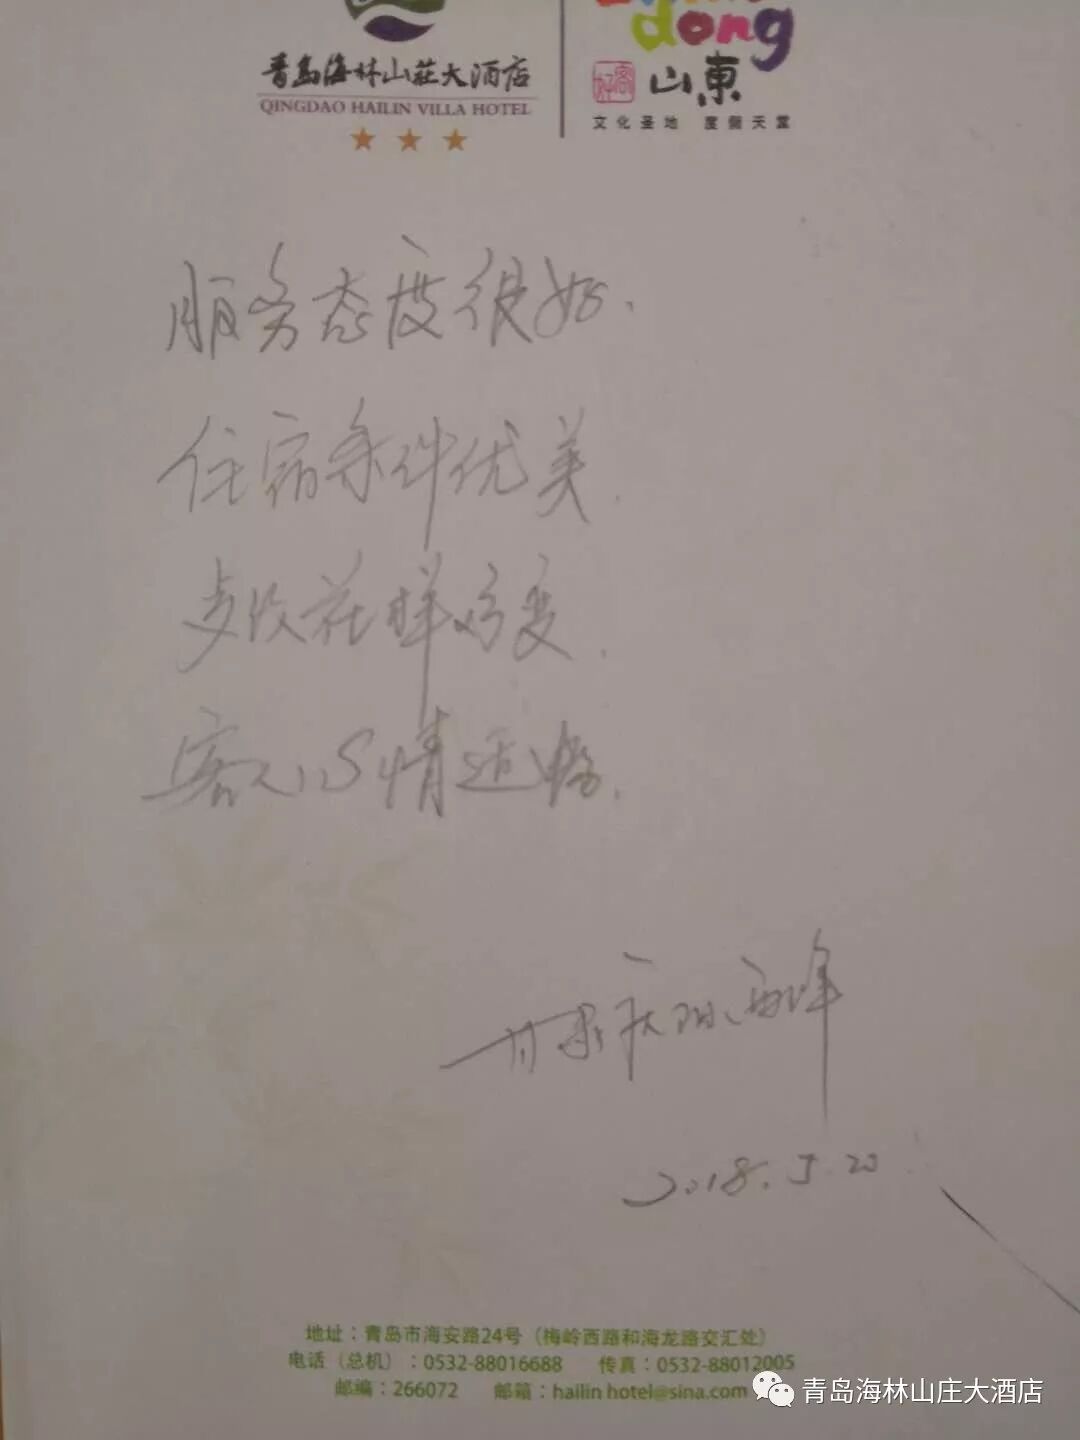 dong
青岛海林山莊大酒店
QINGDAO HAILIN VILLA HOTEL
好客
山東
文化圣地 度假天堂
服务态度很好、
住宿条件优美.
花样多变.
客人心情适畅.
甘肃庆阳西峰
2018.5.20
地址：青岛市海安路24号（梅岭西路和海龙路交汇处）
电话（总机）：0532-88016688 传真：0532-88012005
邮编：266072 邮箱：hailin hotel@sina.com
青岛海林山庄大酒店